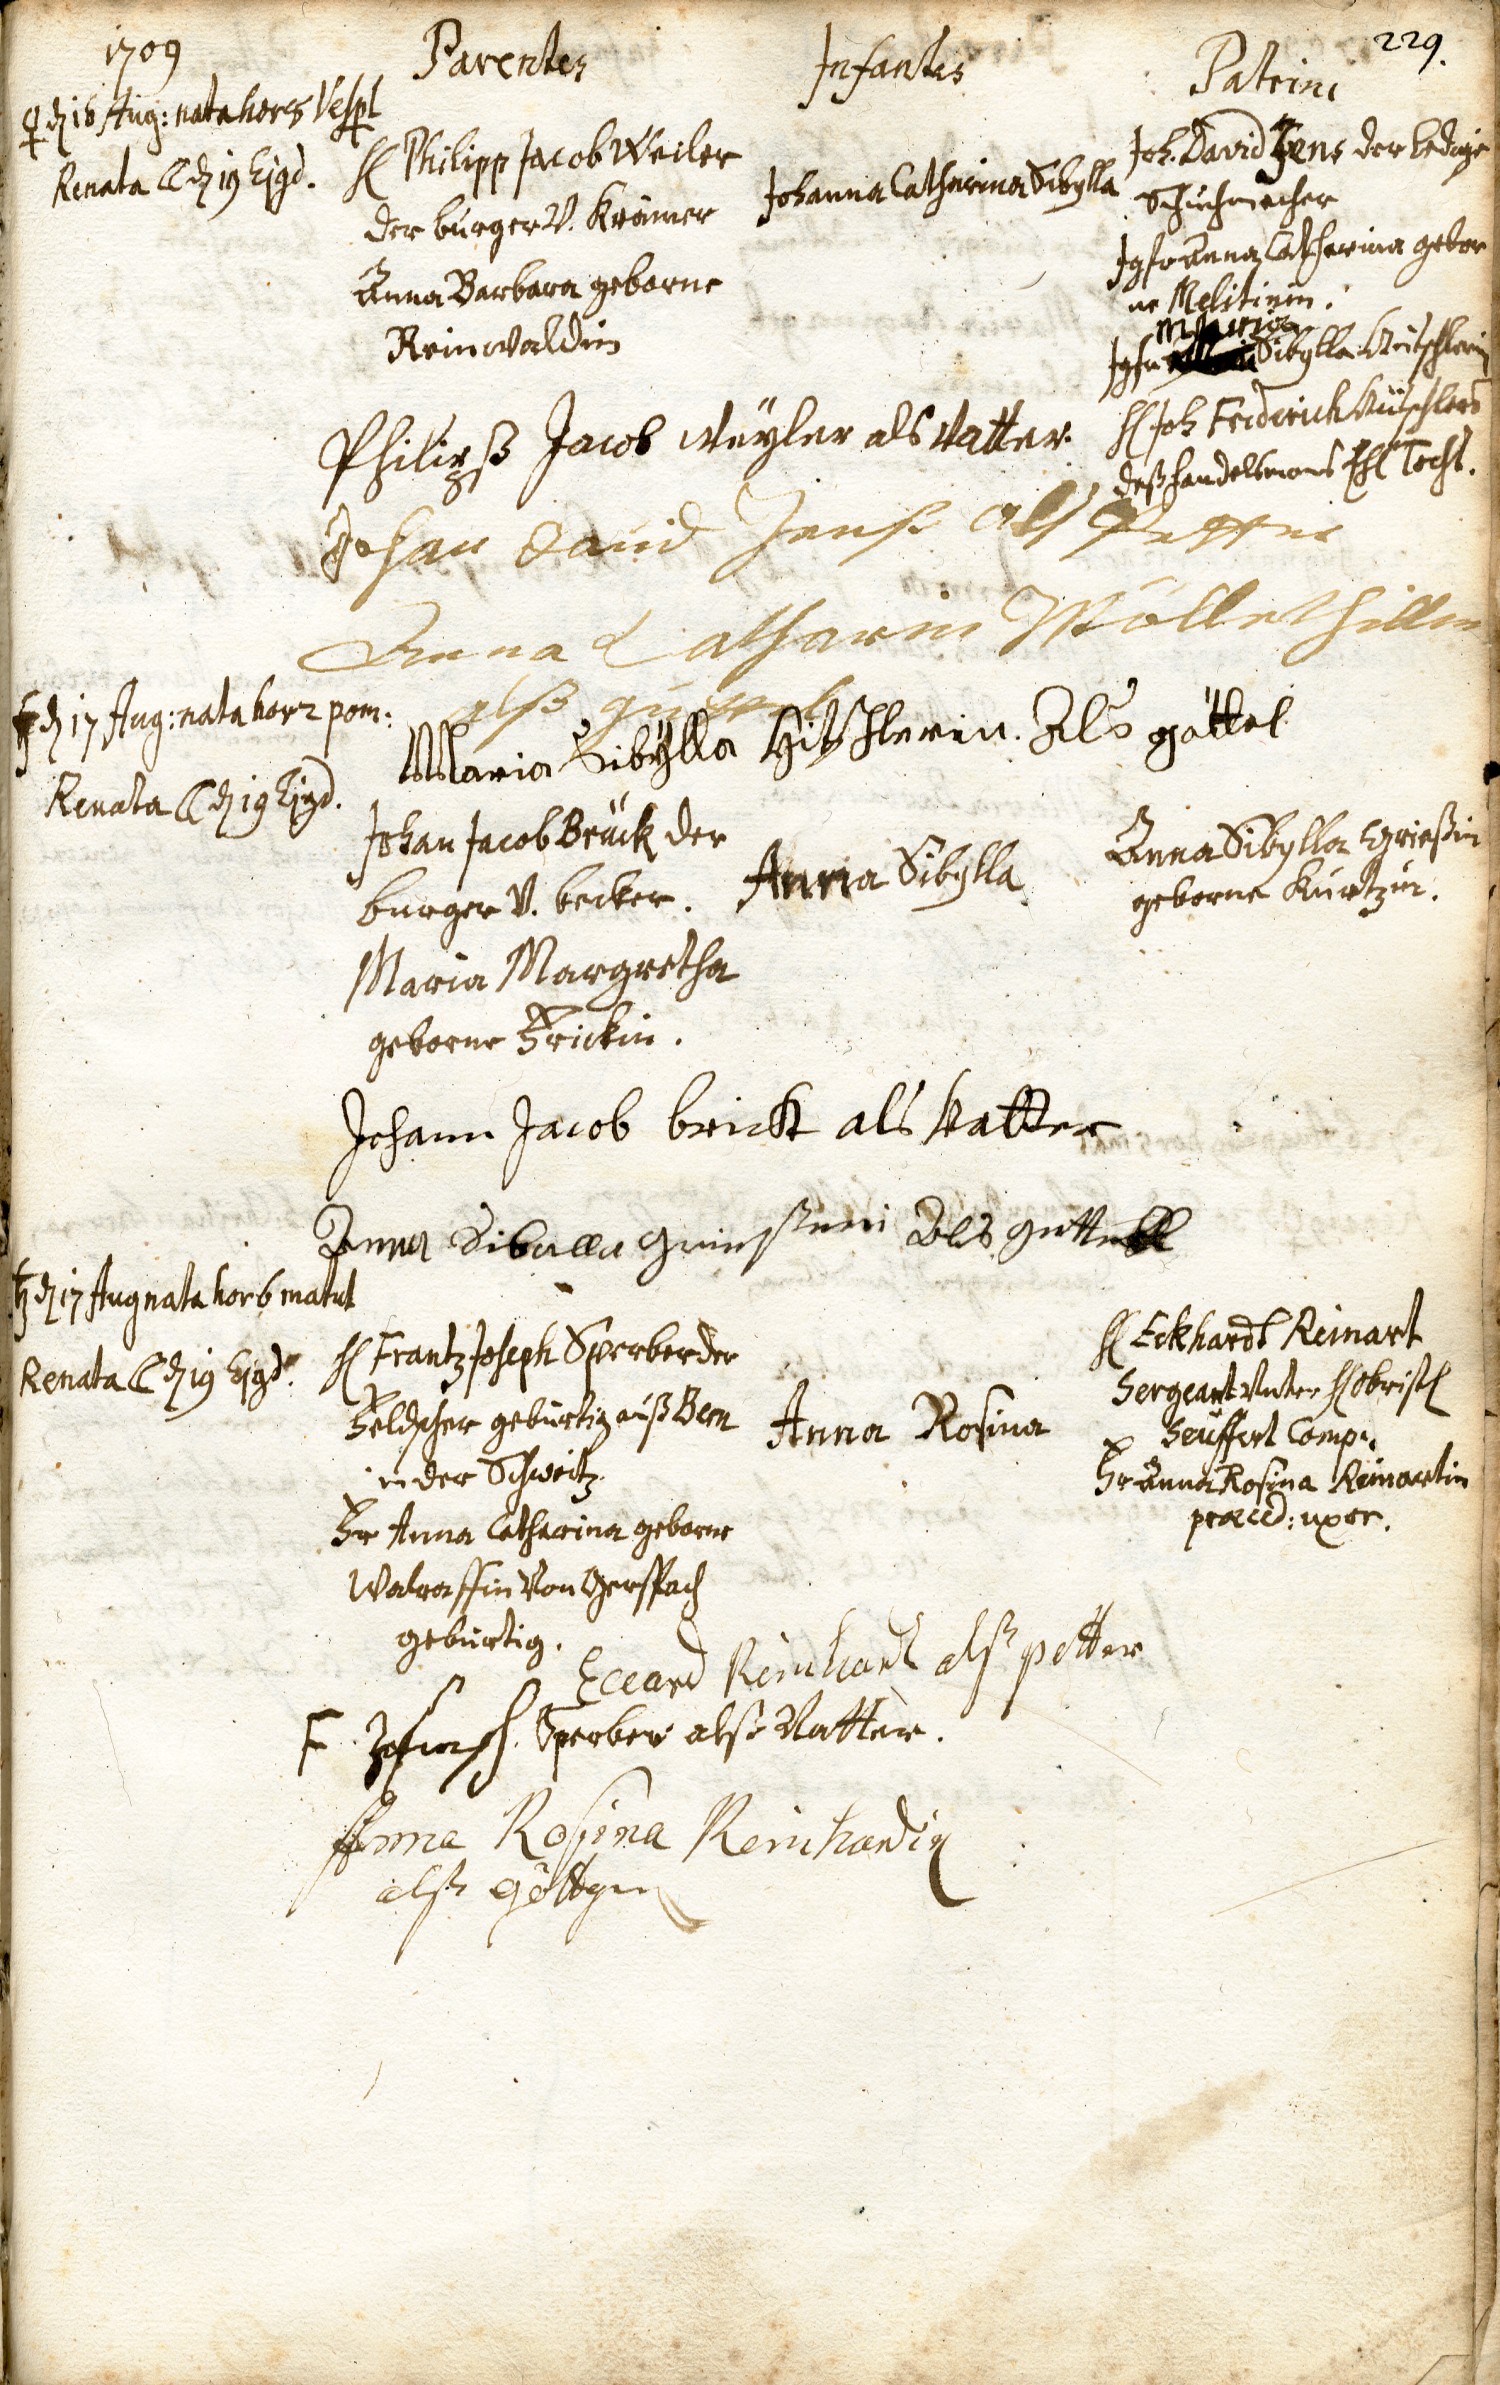 229.
1709 Parentes Infantes Patrini
♀ d 16 Aug: nata hor 5 Vesp
Renata ☾ d 19 Ejgd.
H Philipp Jacob Weiler
der burger V. Krämer
Anna Barbara geborne
Reinwaldin
Johanna Catharina Sibylla
Joh. David Jens der ledige
Schuhmacher
Jgfr Anna Catharina gebor
ne
Maria
Jgfr Sibylla Kütschlerin
H Joh Friderich Kütschlers
deß handelsmans Ehl Tocht.
Philipß Jacob Weÿler als Vatter.
Johan David Jens als Petter
Anna Catharin
alß
Maria Sibÿlla Hitschlerin. Als göttel
♄ d 17 Aug: nata hor 2 pom:
Renata ☾ d 19 Ejgd.
Johan Jacob Brück der
burger V. becker.
Maria Margretha
geborne Frickin.
Anna Sibylla
Anna Sibylla Grießin
geborne Kurtzin.
Johann Jacob brickt als Vatter
Anna Sibulla als
♄ d 17 Aug nata hor 6 matut
Renata ☾ d 19 Ejgd.
H Frantz Joseph Sperber der
Feldscher gebürtig auß Bern
in der Schweitz.
Fr Anna Catharina geborne
Walraffin Von Gerspach
gebürtig.
Anna Rosina
H Eckhardt Reinart
Sergeant Unter H Obrist
Seuffert Comp:
Fr Anna Rosina Reinartin
præced: uxor.
Eccard Reinhart alß petter
F. Joseph. Sperber alß Vatter.
Anna Rosina Reinhardin
alß göttgen